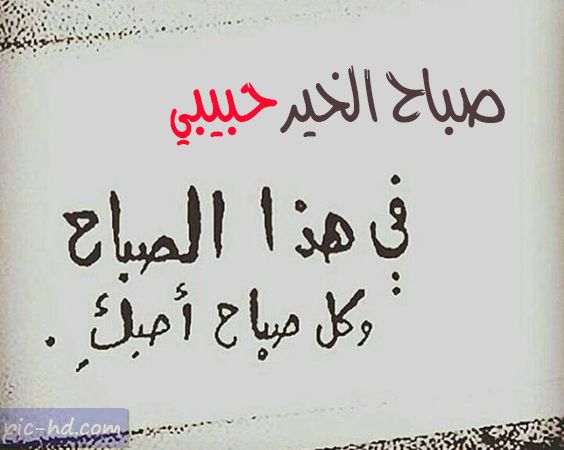 صباح الخير حبيبي
في هذا الصباح :
وكل صباح أحبكِ .
pic-hd.com